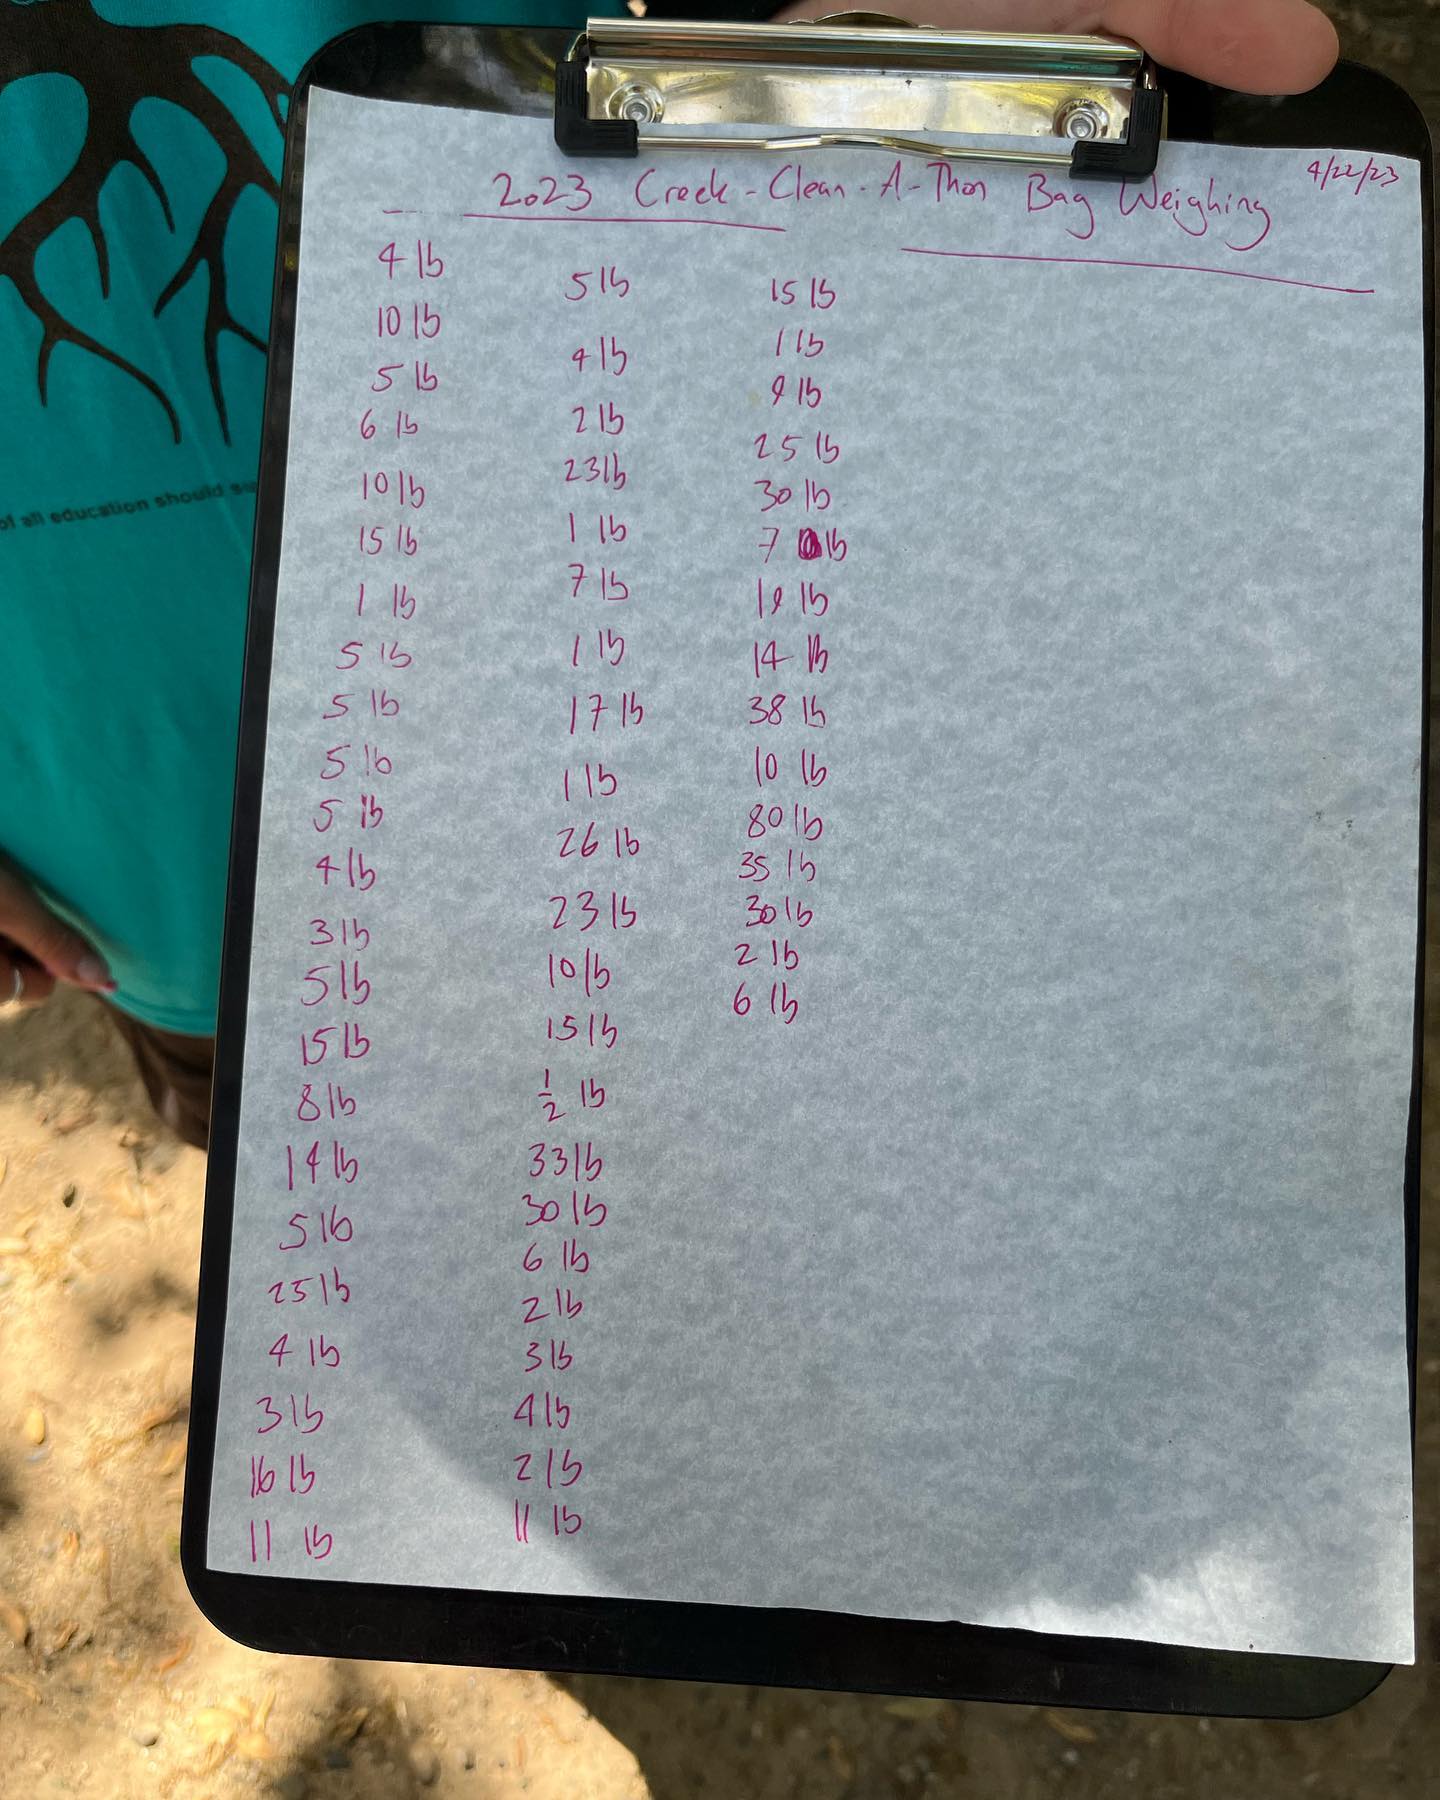 4/22/23
2023 Creek-Clean-A-Thon Bag Weighing
4 lb
10 lb
5 lb
6 lb
10 lb
15 lb
1 lb
5 lb
5 lb
5 lb
5 lb
4 lb
3 lb
5 lb
15 lb
8 lb
14 lb
5 lb
25 lb
4 lb
3 lb
16 lb
11 lb
5 lb
4 lb
2 lb
23 lb
1 lb
7 lb
1 lb
17 lb
1 lb
26 lb
23 lb
10 lb
15 lb
1/2 lb
33 lb
30 lb
6 lb
2 lb
3 lb
4 lb
2 lb
11 lb
15 lb
1 lb
lb
25 lb
30 lb
7 lb
lb
14 lb
38 lb
10 lb
80 lb
35 lb
30 lb
2 lb
6 lb
of all education should